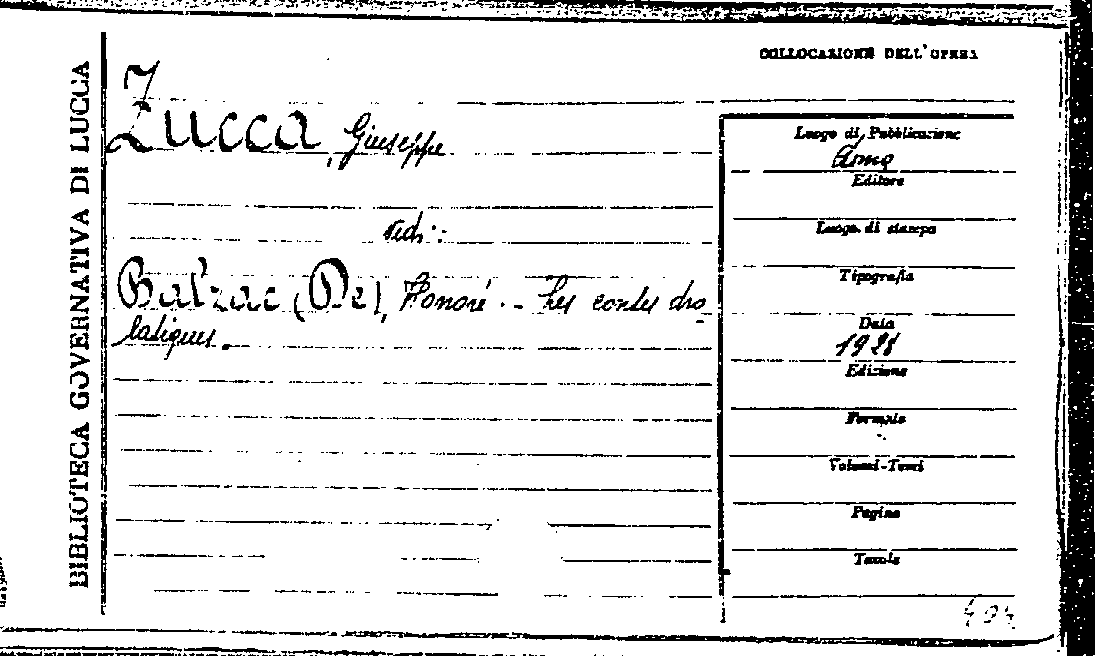 BIBLIOTECA GOVERNATIVA DI LUCCA
COLLOCAZIONE DELL'OPERA
Zucca, Giuseppe
vedi:
Balzac (De), Honoré. - Les contes dro
latiques.
Luogo di Pubblicazione
Roma
Editore
Luogo di stampa
Tipografia
Data
1928
Edizione
Formato
Volumi-Tomi
Pagine
Tavole